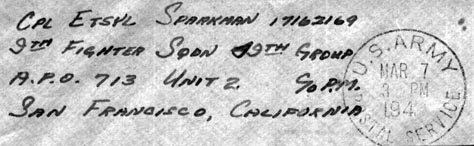 CPL ETSYL SPARKMAN 17162169
9TH FIGHTER SQDN 49TH GROUP
A.P.O. 713 UNIT 2 c/o P.M.
SAN FRANCISCO, CALIFORNIA
U.S. ARMY
MAR 7
3 PM
194
POSTAL SERVICE